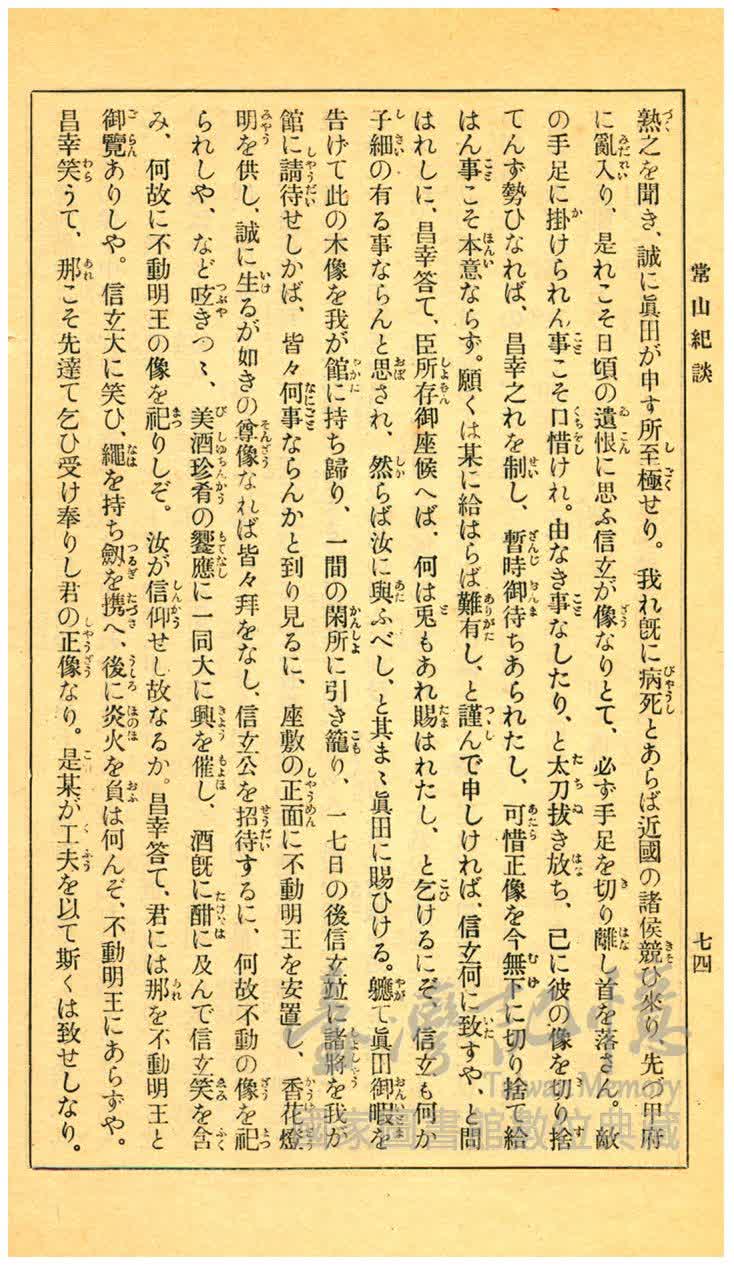 常山紀談
七四
熟之を聞き、誠に眞田が申す所至極せり。我れ旣に病死とあらば近國の諸侯競ひ來り、先づ甲府
に亂入り、是れこそ日頃の遺恨に思ふ信玄が像なりとて、必ず手足を切り離し首を落さん。敵
の手足に掛けられん事こそ口惜けれ。由なき事なしたり、と太刀拔き放ち、已に彼の像を切り捨
てんず勢ひなれば、昌幸之れを制し、暫時御待ちあられたし、可惜正像を今無下に切り捨て給
はん事こそ本意ならず。願くは某に給はらば難有し、と謹んで申しければ、信玄何に致すや、と問
はれしに、昌幸答て、臣所存御座候へば、何は兎もあれ賜はれたし、と乞けるにぞ、信玄も何か
子細の有る事ならんと思され、然らば汝に與ふべし、と其まゝ眞田に賜ひける。軈て眞田御暇を
告げて此の木像を我が館に持ち歸り、一間の閑所に引き籠り、一七日の後信玄竝に諸將を我が
館に請待せしかば、皆々何事ならんかと到り見るに、座敷の正面に不動明王を安置し、香花燈
明を供し、誠に生るが如きの尊像なれば皆々拜をなし、信玄公を招待するに、何故不動の像を祀
られしや、など呟きつゝ、美酒珍肴の饗應に一同大に興を催し、酒旣に酣に及んで信玄笑を含
み、何故に不動明王の像を祀りしぞ。汝が信仰せし故なるか。昌幸答て、君には那を不動明王と
御覽ありしや。信玄大に笑ひ、繩を持ち劔を携へ、後に炎火を負は何んぞ、不動明王にあらずや。
昌幸笑うて、那こそ先達て乞ひ受け奉りし君の正像なり。是某が工夫を以て斯くは致せしなり。
臺灣記憶
Taiwan Memory
國家圖書館數位典藏